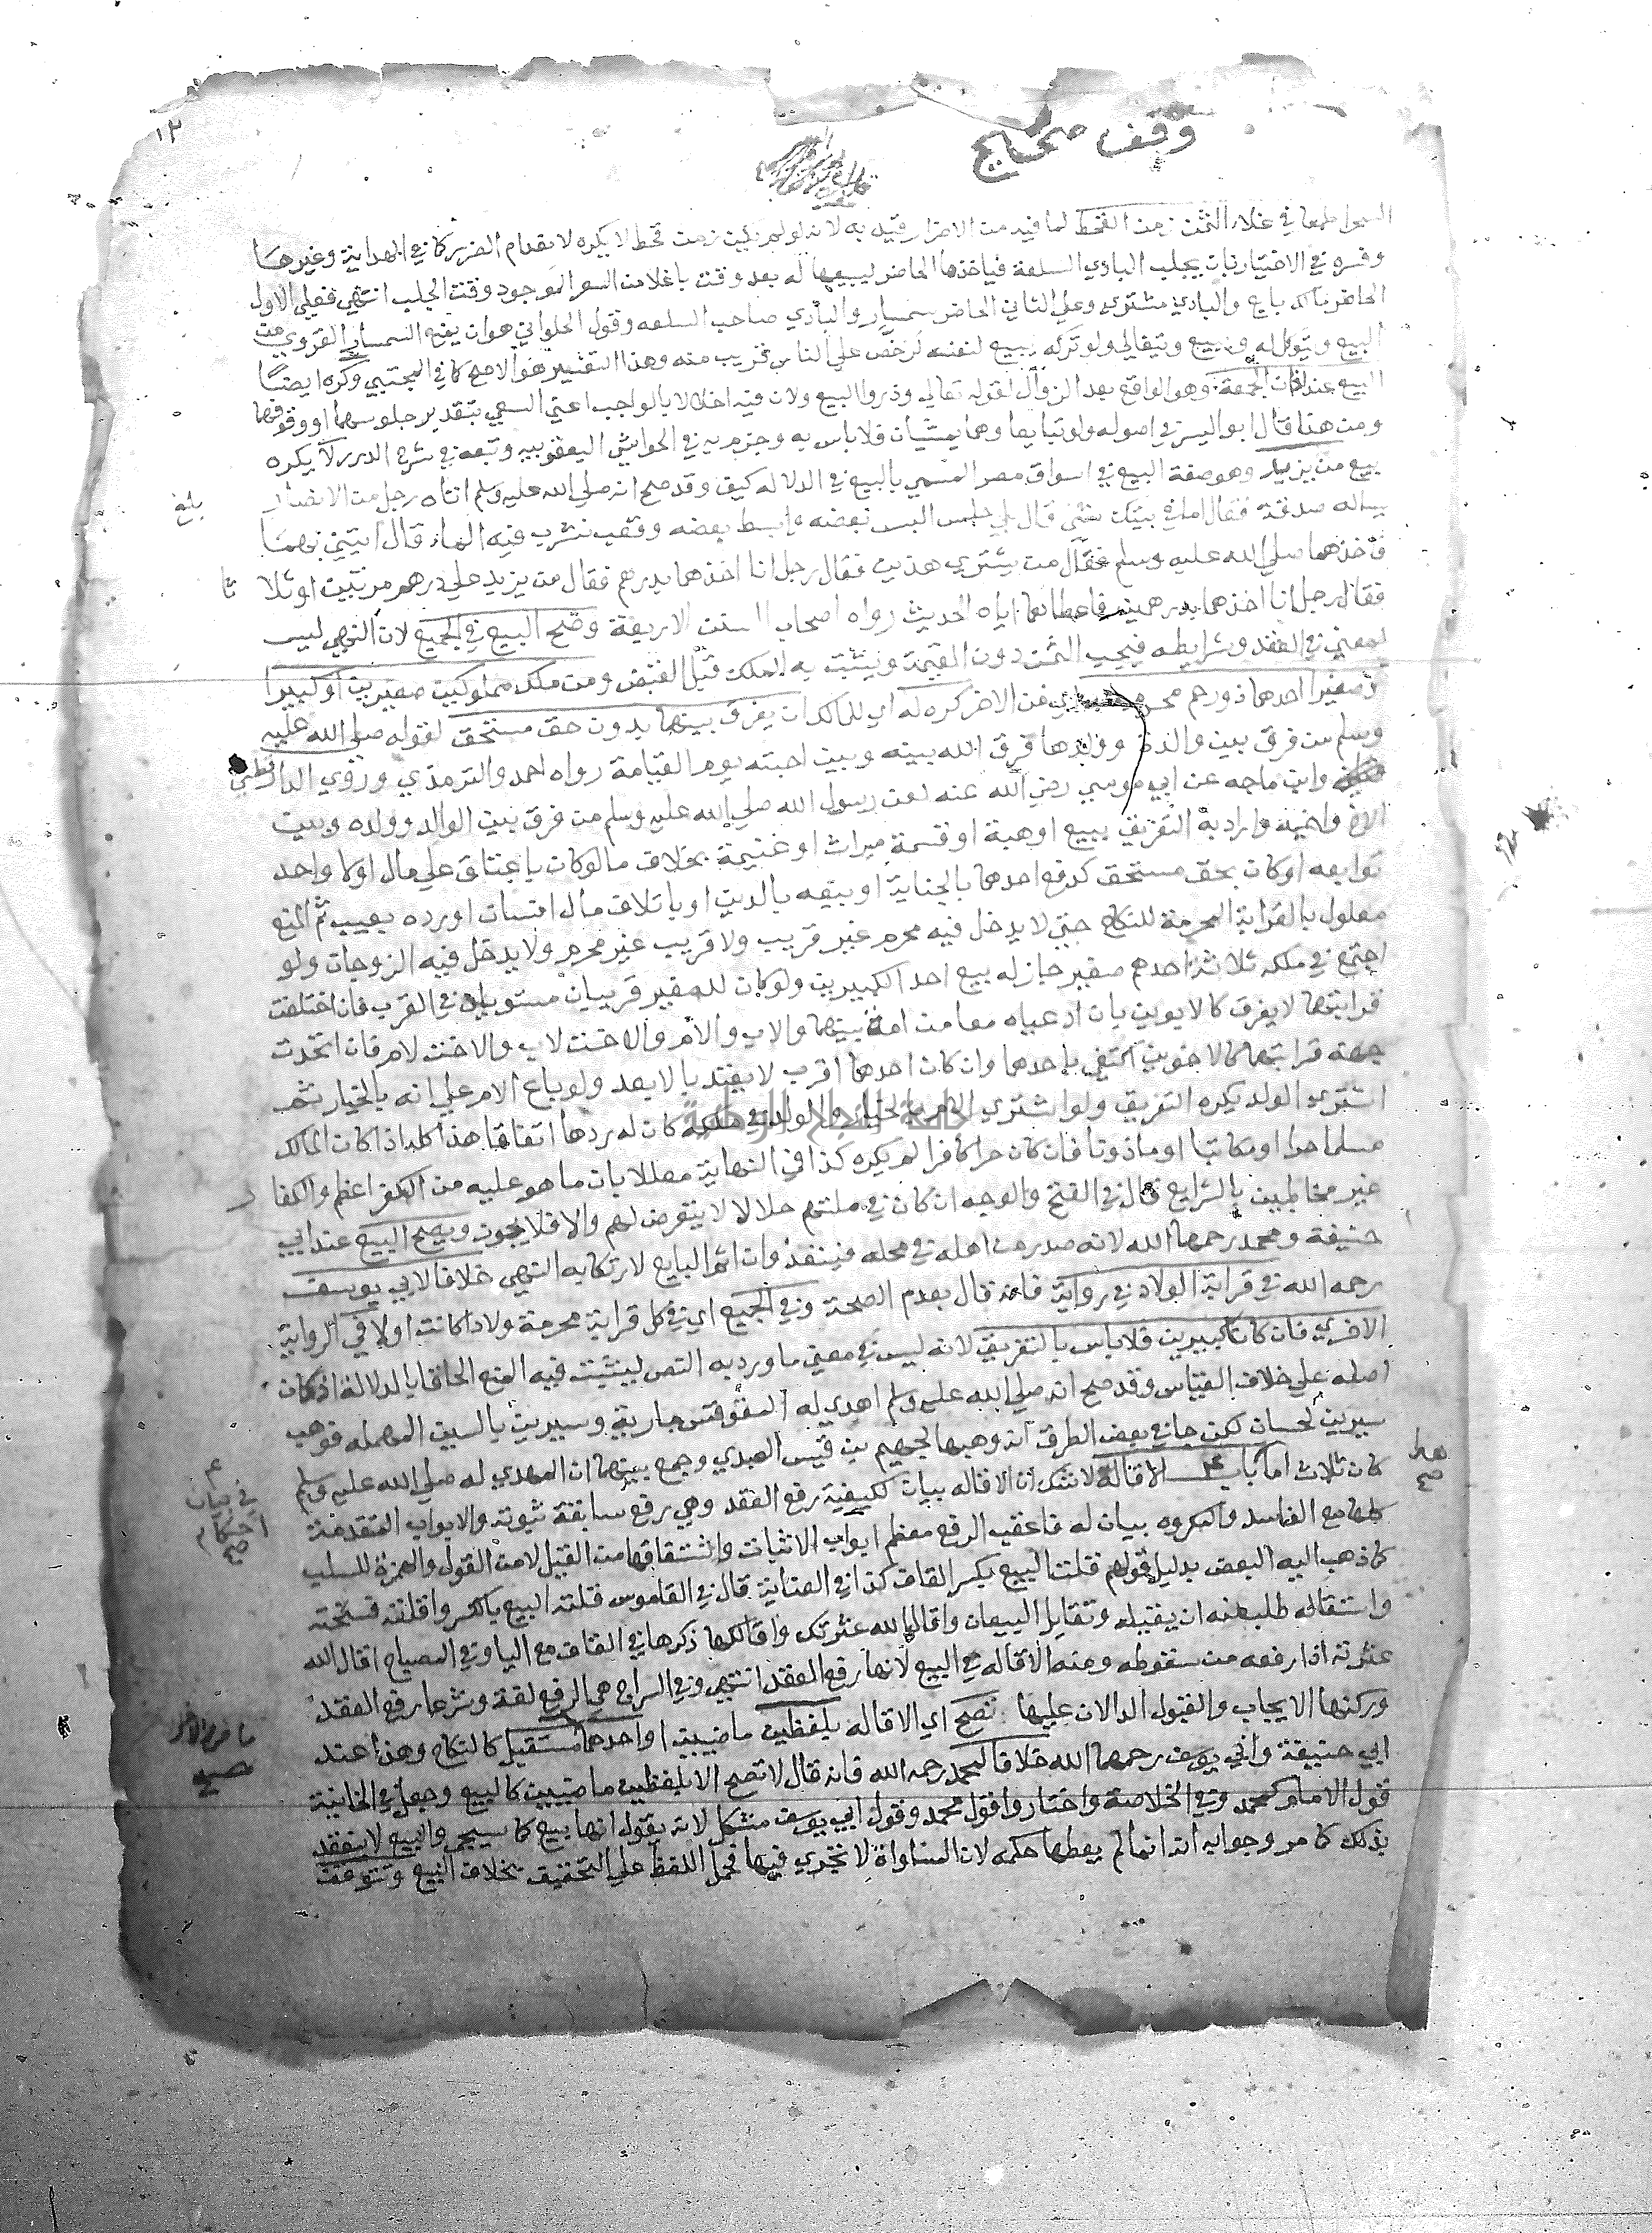 ١٢
وقف صحيح
طمعا في غلاء الثمن زمن القحط لما فيه من الاضرار قيد به لانه لو لم يكن زمن قحط لا يكره لانعدام الضرر كما في الهداية وغيرها
وفسره في الاختيار بان يجلب البادي السلعة فياخذها الحاضر ليبيعها له بعد وقت باغلا من السعر الموجود وقت الجلب انتهي فعلي الاول
الحاضر مالك بايع والبادي مشتري وعلي الثاني الحاضر سمسار والبادي صاحب السلعه وقول الحلواني هو ان يمنع السمسار الحاضر القروي من
البيع ويتوكل له ويبيع ويتغالي ولو تركه يبيع لنفسه لرخص علي الناس قريب منه وهذا التفسير هو الاصح كما في المجتبي وكره ايضا
البيع عند اذان الجمعة وهو الواقع بعد الزوال لقوله تعالي وذروا البيع ولان فيه اخلالا بالواجب اعني السعي بتقدير جلوسهما او وقوفهما
ومن هنا قال ابو اليسر في اصوله ولو تبايعا وهما يمشيان فلا باس به وجزم به في الحواشي اليعقوبيه وتبعه في شرح الدرر لا يكره
بيع من يزيد وهو صفة البيع في اسواق مصر المسمي بالبيع في الدلاله كيف وقد صح انه صلي الله عليه وسلم اتاه رجل من الانصار
يساله صدقة فقال اما في بيتك شي قال بلي حلس البس بعضه وابسط بعضه وقعب نشرب فيه الماء قال ايتيني بهما
فاخذهما صلي الله عليه وسلم فقال من يشتري هذين فقال رجل انا اخذهما بدرهم فقال من يزيد علي درهم مرتين او ثلا
ثا
فقال رجل انا اخذهما بدرهمين فاعطاهما اياه الحديث رواه اصحاب السنن الاربعة وصح البيع في الجميع لان النهي ليس
لمعني في العقد وشرايطه فيجب الثمن دون القيمة ويثبت به الملك قبل القبض ومن ملك مملوكين صغيرين او كبيرا
وصغيرا احدهما ذو رحم محرم من الاخر كره له اي للمالك ان يفرق بينهما بدون حق مستحق لقوله صلي الله عليه
وسلم من فرق بين والدة وولدها فرق الله بينه وبين احبته يوم القيامة رواه احمد والترمذي وروي الدارقطني
وابن ماجه عن ابي موسي رضي الله عنه لعن رسول الله صلي الله عليه وسلم من فرق بين الوالد وولده وبين
الاخ واخيه واراد به التفريق ببيع او هبة او قسمة ميراث او غنيمة بخلاف ما لو كان باعتاق علي مال او كا واحد
توابعه او كان بحق مستحق كدفع احدهما بالجناية او بيعه بالدين او باتلاف مال انسان او رده بعيب ثم المنع
معلول بالقرابة المحرمة للنكاح حتي لا يدخل فيه محرم غير قريب ولا قريب غير محرم ولا يدخل فيه الزوجان ولو
اجتمع في ملكه ثلاثة احدهم صغير جاز له بيع احد الكبيرين ولو كان للصغير قريبان مستويان في القرب فان اختلفت
قرابتهما لا يفرق كالابوين بان ادعياه معا من امة بينهما والاب والام والاخت لاب والاخت لام فان اتحدت
جهة قرابتهما كالاخوين اكتفي باحدهما وان كان احدهما اقرب لا يعتد بالابعد ولو باع الام علي انه بالخيار ثم
اشتري الولد يكره التفريق ولو اشتري الام بالخيار والولد في ملكه كان له ردها اتفاقا هذا كله اذا كان المالك
مسلما حرا او مكاتبا او ماذونا فان كان حرا كافرا لم يكره كذا في النهاية معللا بان ما هو عليه من الكفر اعظم والكفا
ر
غير مخاطبين بالشرايع قال في الفتح والوجه ان كان في ملتهم حلالا لا يتعرض لهم والا فلا يجوز ويصح البيع عند ابي
حنيفة ومحمد رحمهما الله لانه صدر من اهله في محله فينفذ وان اثم البايع لارتكابه النهي خلافا لابي يوسف
رحمه الله في قرابة الولاد في رواية فانه قال بعدم الصحة وفي الجميع اي في كل قرابة محرمة ولادا كانت اولا في الرواية
الاخري فان كانا كبيرين فلا باس بالتفريق لانه ليس في معني ما ورد به النص ليثبت فيه المنع الحاقا بالدلالة اذ كان
اصله علي خلاف القياس وقد صح انه صلي الله عليه وسلم اهدي له المقوقس جارية وسيرين بالسين المهمله فوهب
سيرين لحسان لكن جا في بعض الطرق انه وهبها لجهم بن قيس العبدي وجمع بينهما ان المهدي له صلي الله عليه وسلم
كان ثلاث اما باب الاقالة لا شك ان الاقاله بيان لكيفية رفع العقد وهي رفع سابقة ثبوته والابواب المتقدمة
كلها مع الفاسد والمكروه بيان له فاعقب الرفع معظم ابواب الاثبات واشتقاقها من القيل لا من القول والهمزة للسلب
كما ذهب اليه البعض بدليل قولهم قلت البيع بكسر القاف كذا في العناية قال في القاموس قلته البيع بالكسر واقلته فسخته
واستقاله طلب منه ان يقيله وتقايل البيعان واقال الله عثرتك واقالكها ذكرها في القاف مع اليا وفي المصباح اقال الله
عثرته اذا رفعه من سقوطه ومنه الاقاله في البيع لانها رفع العقد انتهي وفي السراج هي الرفع لغة وشرعا رفع العقد
وركنها الايجاب والقبول الدالان عليها تصح اي الاقاله بلفظين ماضيين او احدهما مستقبل كالنكاح وهذا عند
ابي حنيفة وابي يوسف رحمهما الله خلافا لمحمد رحمه الله فانه قال لا تصح الا بلفظين ماضيين كالبيع وجعل في الخانية
قول الامام كمحمد وفي الخلاصة واختاروا قول محمد وقول ابي يوسف مشكل لانه يقول انها بيع كما سيجي والبيع لا ينعقد
بذلك كما مر وجوابه انه انما لم يعطها حكمه لان المساواة لا تجري فيها فحمل اللفظ علي التحقيق بخلاف البيع وتتوقف
بلغ
في بيان
احكام
صح